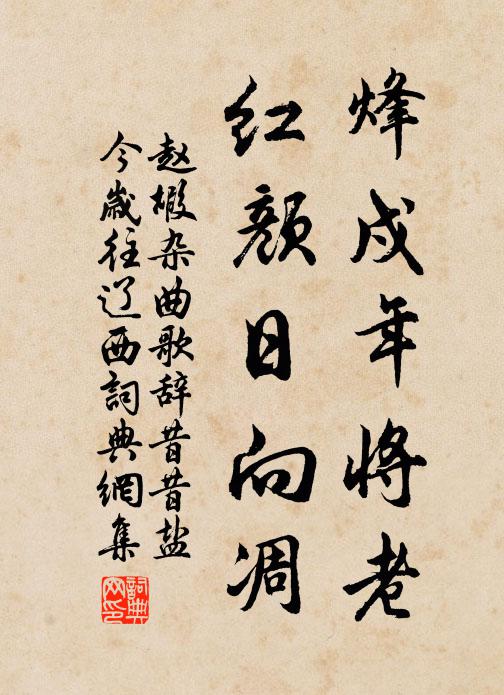 烽戍年将老
红颜日向凋
赵嘏杂曲歌辞昔昔盐
今歲往辽西詞典網集
詞典
网印